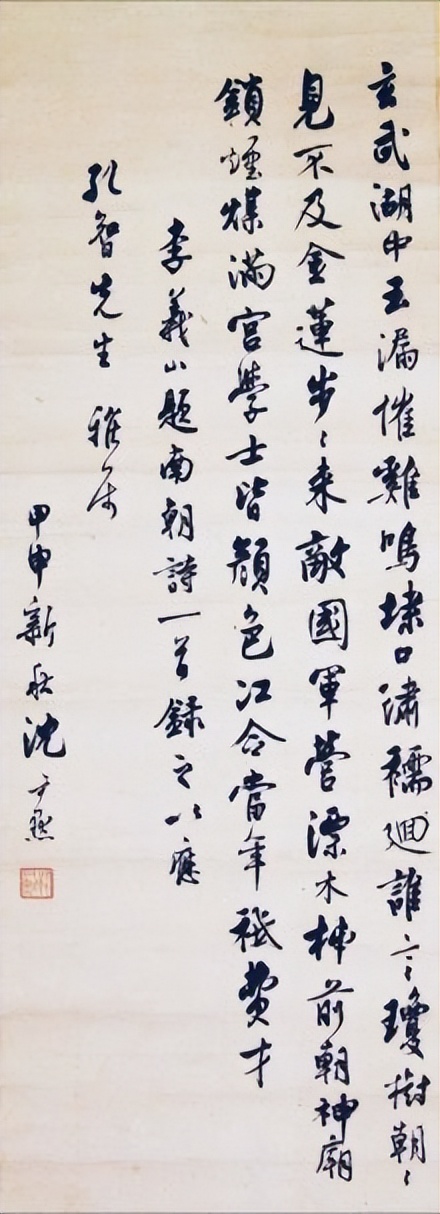 玄武湖中玉漏催雞鳴埭口繡襦迴誰言瓊樹朝〻
見不及金蓮步〻来敵國軍營漂木柹前朝神廟
鎖煙煤滿宮學士皆顔色江令當年秪費才
李義山題南朝詩一首録之以應
孔智先生 雅属
甲申新秋沈尹默